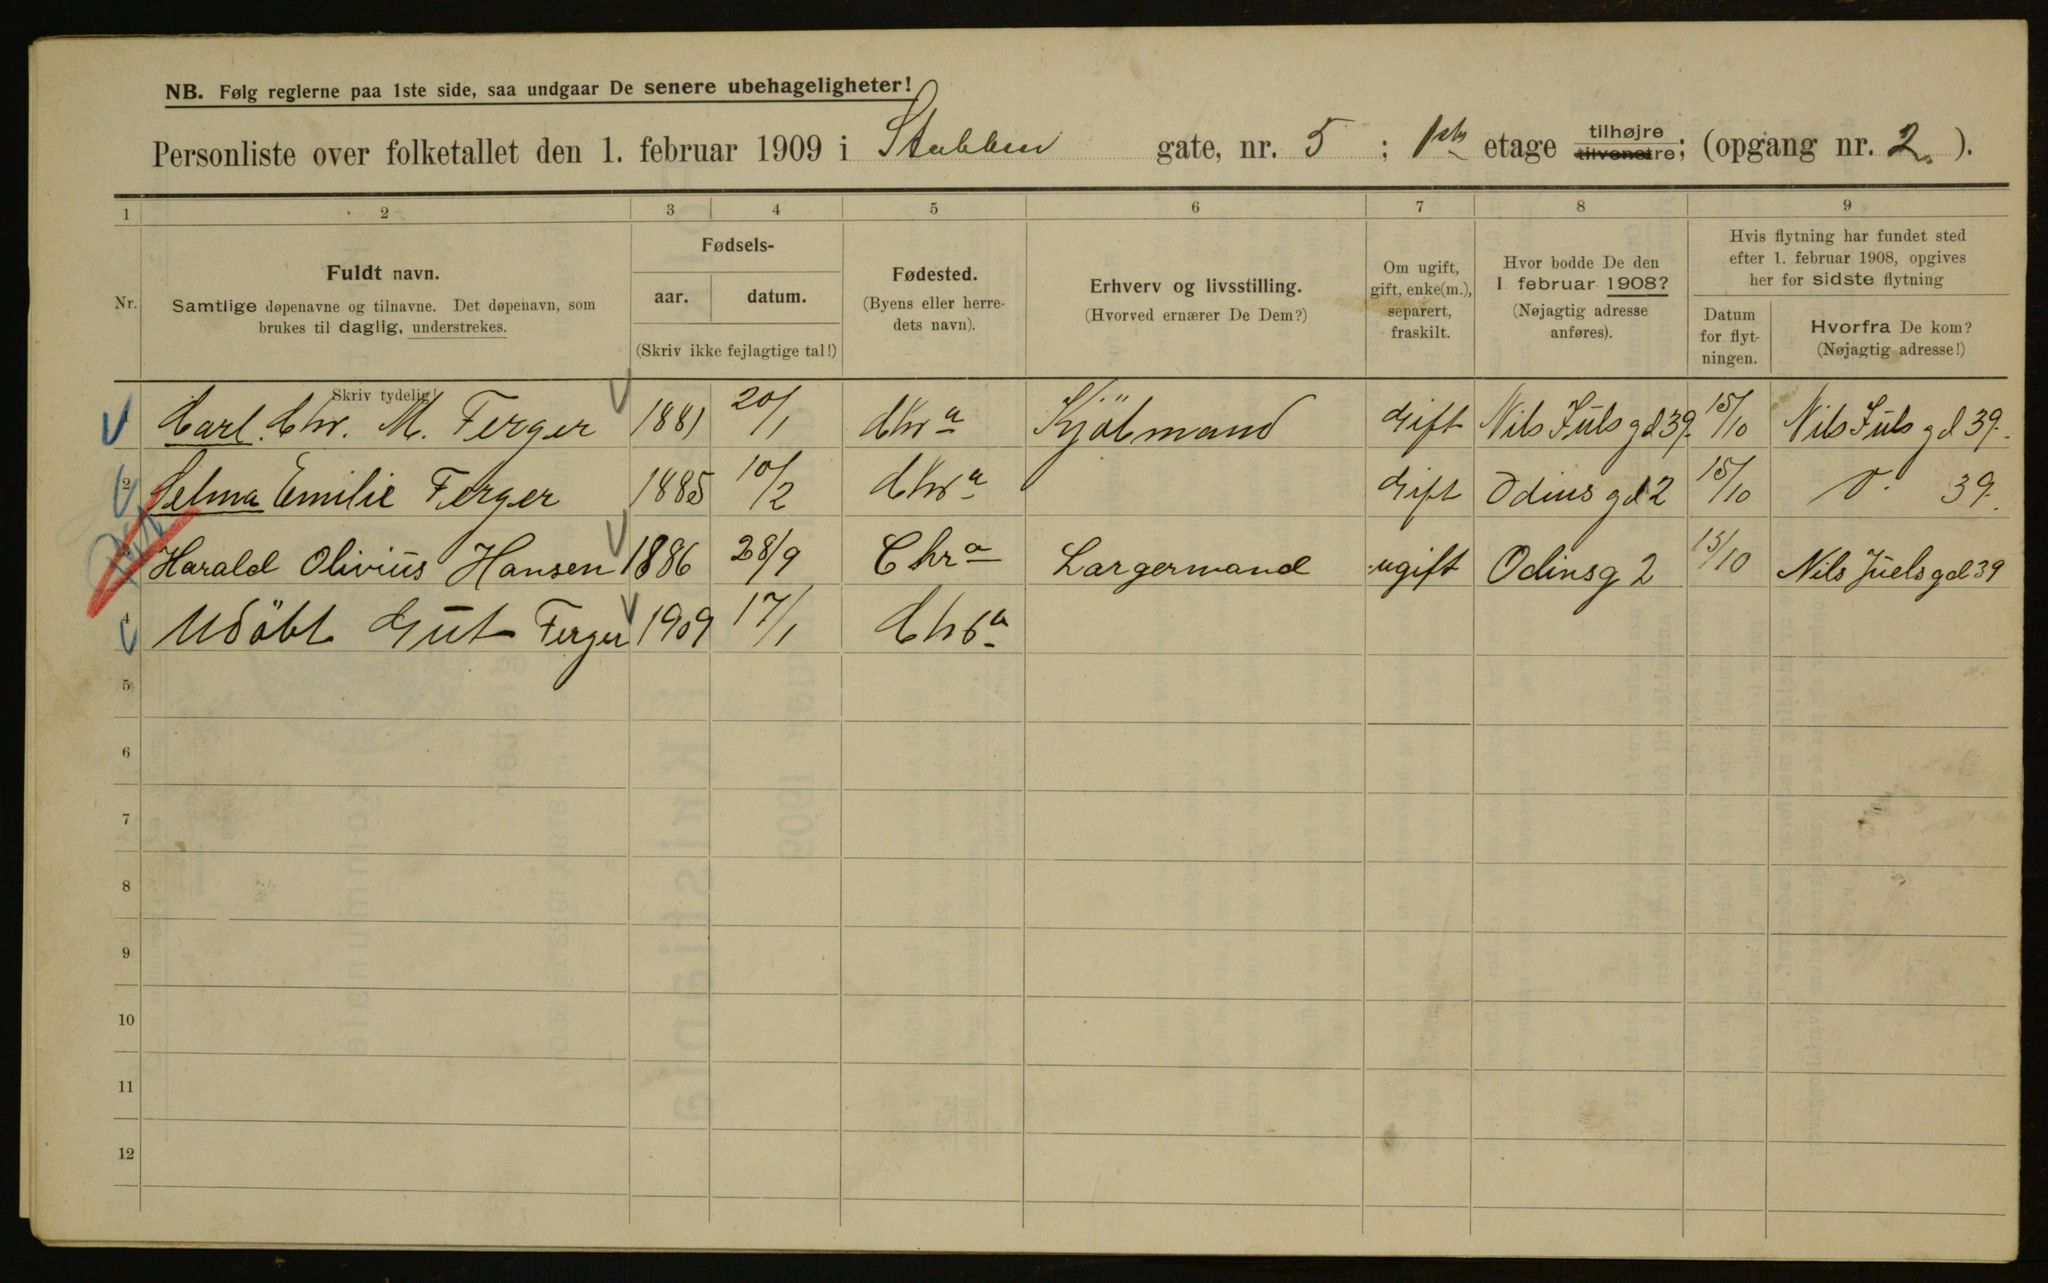 NB. Følg reglerne paa 1ste side, saa undgaar De senere ubehageligheter!
Personliste over folketallet den 1. februar 1909 i Stubben gate, nr. 5 ; 1ste etage tilhøjre tilvenstre; (opgang nr. 2. ).
1 2 3 4 5 6 7 8 9
Nr.
Fuldt navn.
Samtlige døpenavne og tilnavne. Det døpenavn, som
brukes til daglig, understrekes.
Fødsels-
aar. datum.
(Skriv ikke fejlagtige tal!)
Fødested.
(Byens eller herre-
dets navn).
Erhverv og livsstilling.
(Hvorved ernærer De Dem?)
Om ugift,
gift, enke(m.),
separert,
fraskilt.
Hvor bodde De den
1. februar 1908?
(Nøjagtig adresse
anføres).
Hvis flytning har fundet sted
efter 1. februar 1908, opgives
her for sidste flytning
Datum
for flyt-
ningen.
Hvorfra De kom?
(Nøjagtig adresse!)
Skriv tydelig!
1 Carl. Chr. M. Ferger 1881 20/1 Chra Kjöbmand Gift Nils Juls gd 39. 15/10 Nils Juls gd 39.
2 Selma Emilie Ferger 1885 10/2 Chra Gift Odins gd 2 15/10 39.
3 Harald Olivius Hansen 1886 28/9 Chra Largermand ugift Odinsg 2 15/10 Nils Juels gd 39
4 Udöbt Gut Ferger 1909 17/1 Chra
5
6
7
8
9
10
11
12